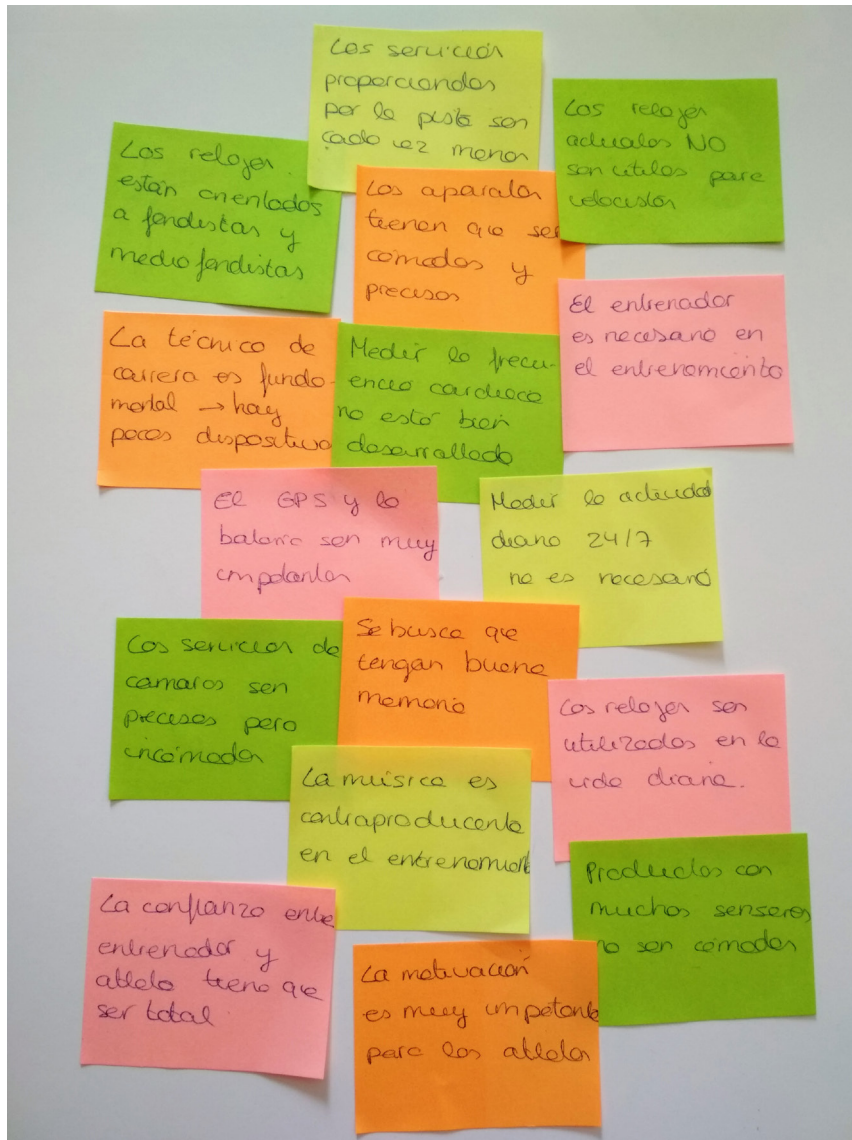 Los servicios
proporcionados
por la pista son
cada vez menor
Los relojes
actuales NO
son útiles para
velocistas
Los relojes
están orientados
a fondistas y
mediofondistas
Los aparatos
tienen que ser
cómodos y
precisos
El entrenador
es necesario en
el entrenamiento
La técnica de
carrera es funda-
mental → hay
pocos dispositivo
Medir la frecu-
encia cardiaca
no está bien
desarrollado
El GPS y la
batería son muy
importantes
Medir la actividad
diaria 24/7
no es necesario
Los servicios de
camaras son
precisos pero
incómodos
Se busca que
tengan buena
memoria
Los relojes son
utilizados en la
vida diaria.
La música es
contraproducente
en el entrenamient
Productos con
muchos sensores
no son cómodos
La confianza entre
entrenador y
atleta tiene que
ser total
La motivación
es muy impotante
para los atletas